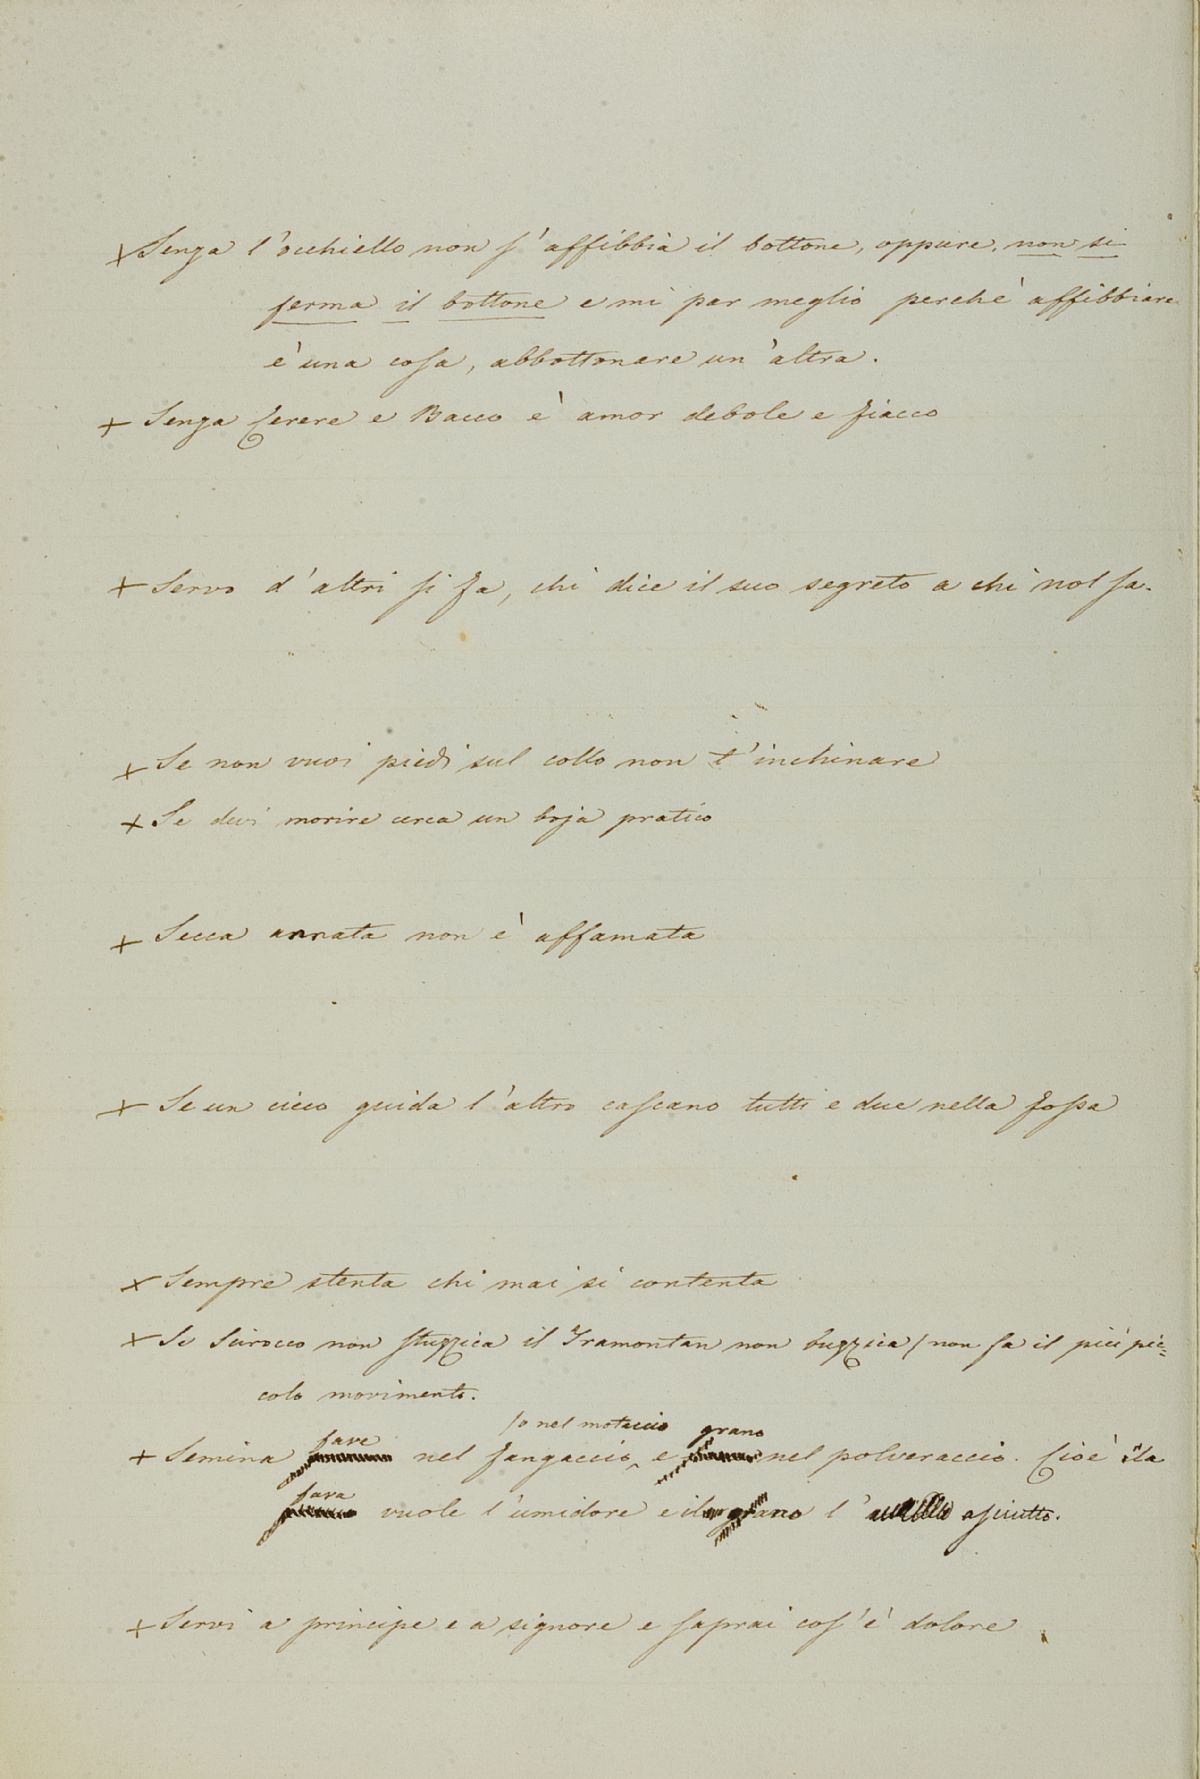 + Senza l'occhiello non s'affibbia il bottone, oppure, non si
ferma il bottone e mi par meglio perchè affibbiare
è una cosa, abbottonare un'altra.
+ Senza Cerere e Bacco è amor debole e fiacco
+ Servo d'altri si fa, chi dice il suo segreto a chi nol sa.
+ Se non vuoi piedi sul collo non t'inchinare
+ Se devi morire cerca un boja pratico
+ Secca annata non è affamata
+ Se un cieco guida l'altro cascano tutti e due nella fossa
+ Sempre stenta chi mai si contenta
+ Se Scirocco non stuzzica il Tramontan non buzzica / non fa il più pic=
colo movimento.
/o nel motaccio grano
fave
+ Semina nel fangaccio, e nel polveraccio. Cioè la
fava
vuole l'umidore e il grano l' asciutto.
+ Servi a principe e a signore e saprai cos'è dolore